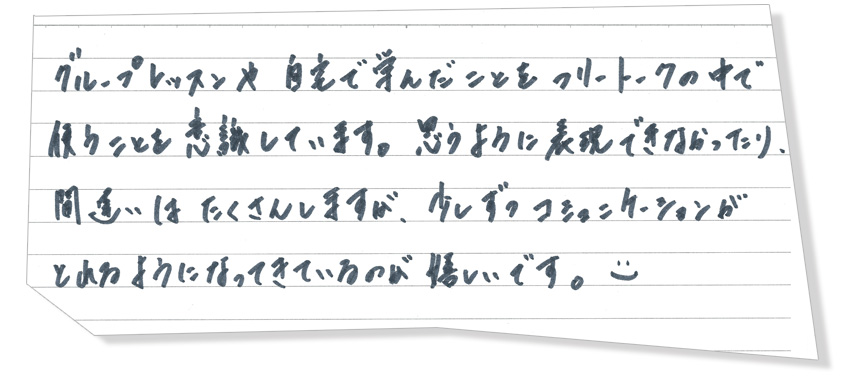 グループレッスンや 自宅で学んだことを フリートークの中で
使うことを 意識しています。思うように表現できなかったり、
間違いは たくさんしますが、少しずつ コミュニケーションが
とれるようになってきているのが 嬉しいです。☺